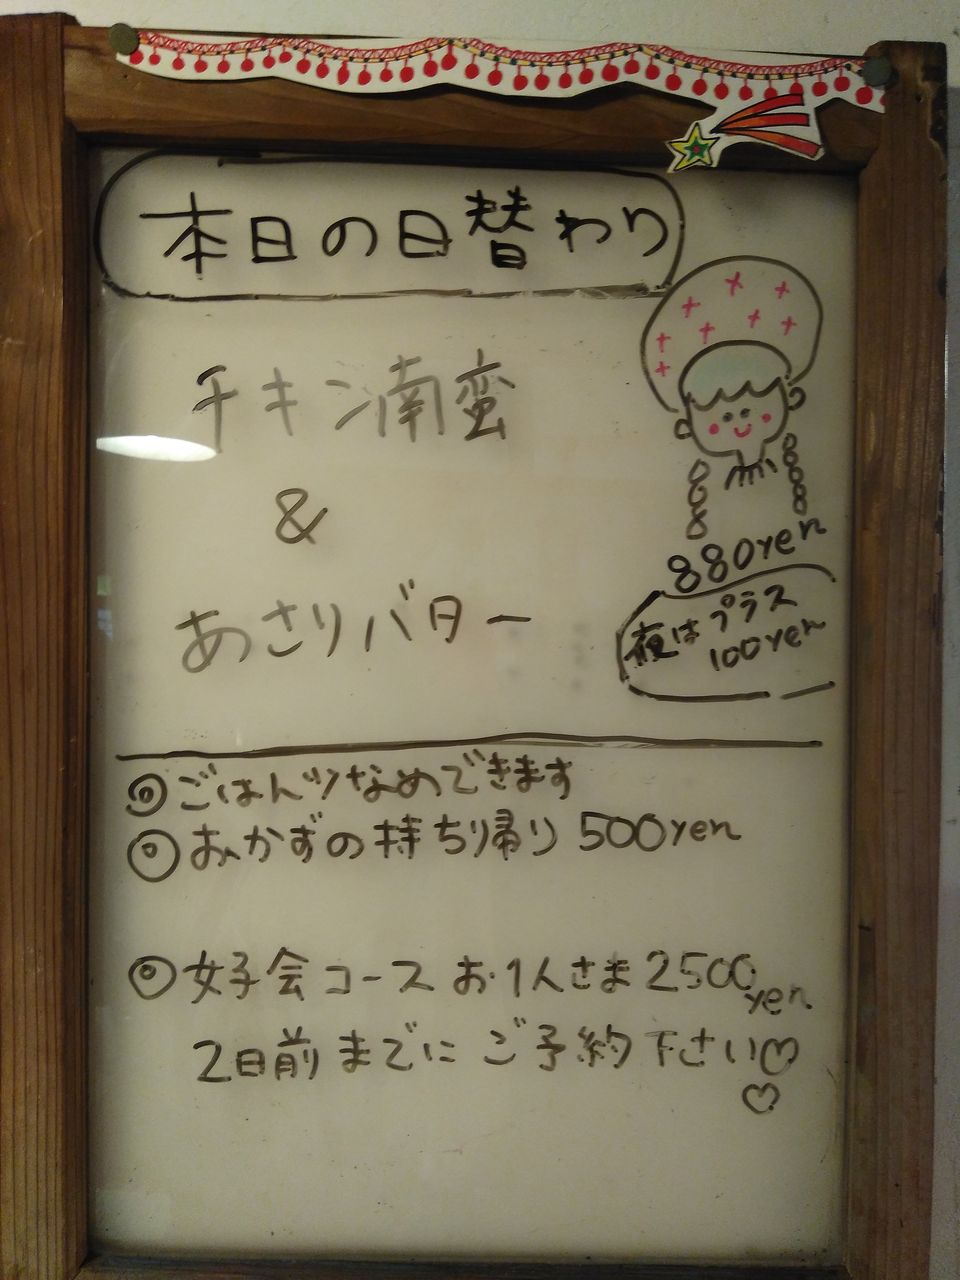 本日の日替わり
チキン南蛮
&
あさりバター
880yen
夜はプラス
100yen
◎ごはん少なめできます
◎おかずの持ち帰り 500yen
◎女子会コース お1人さま2500yen
2日前までにご予約下さい♡
♡